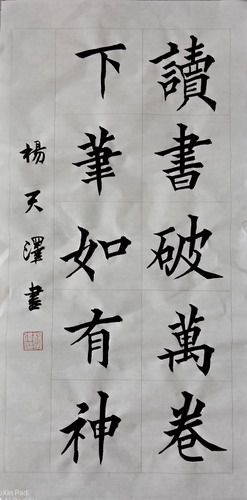 讀書破萬卷
下筆如有神
楊天澤書